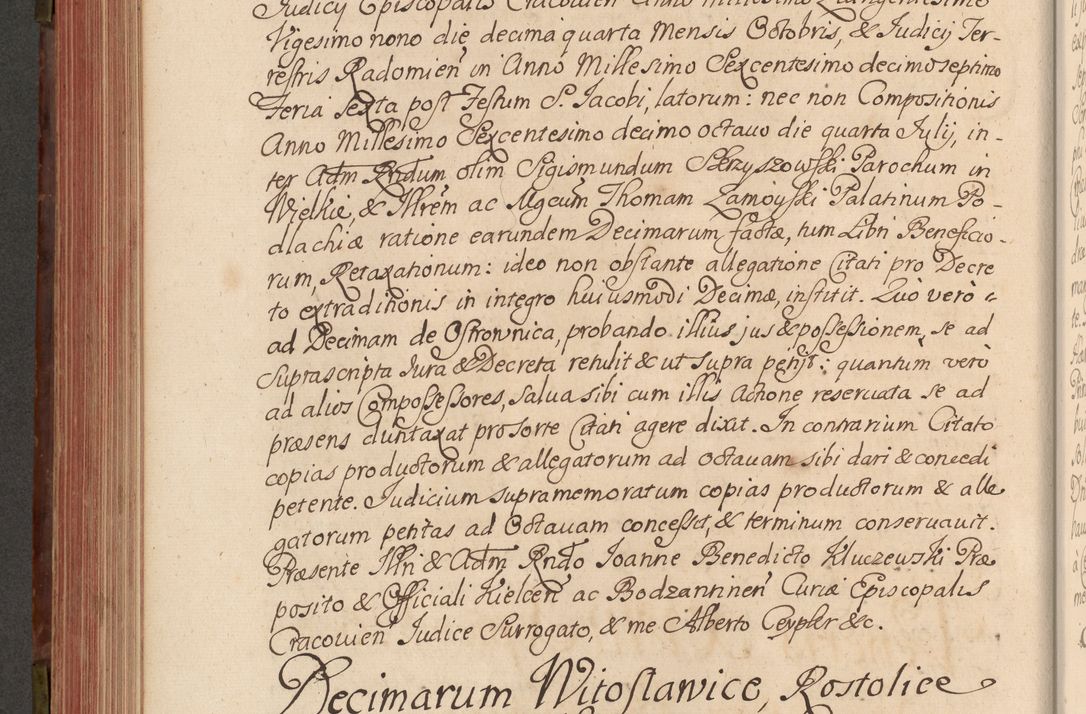 Judicij Episcopalis Cracovien Anno Millesimo Quingentesimo
Vigesimo nono die decima quarta Mensis Octobris, & Judicij Ter-
restris Radomien in Anno Millesimo Sexcentesimo decimo septimo
Feria sexta post Festum S. Jacobi, latorum: nec non Compositionis
Anno Millesimo Sexcentesimo decimo octauo die quarta Julij, in-
ter Adm Rndum olim Sigismundum Skrzyszowski Parochum in
Wielkie, & Illrem ac Mgcum Thomam Zamoyski Palatinum Po-
dlachiæ ratione earundem Decimarum factæ, tum Libri Beneficio-
rum, Retaxationum: ideo non obstante allegatione Citati pro Decre
to extraditionis in integro huiusmodi Decimæ, institit. Quò verò
ad Decimam de Ostrownica, probando illius jus & possessionem, se ad
suprascripta Jura & Decreta retulit & ut supra petijt: quantum verò
ad alios Compossessores, salua sibi cum illis actione reseruata se ad
præsens duntaxat pro sorte Citati agere dixit. In contrarium Citato
copias productorum & allegatorum ad octauam sibi dari & concedi
petente. Judicium supramemoratum copias productorum & alle
gatorum petitas ad Octauam concessit, & terminum conseruauit.
Præsente Illri & Adm Rndo Joanne Benedicto Kluczewski Præ
posito & Officiali Kielcen ac Bodzantinen Curiæ Episcopalis
Cracouien Judice Surrogato, & me Alberto Ceypler &c.
Decimarum Witoslawice, Rostolice